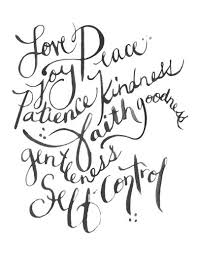 Love Peace
Joy
Patience Kindness
faith goodness
gentleness
Self-Control